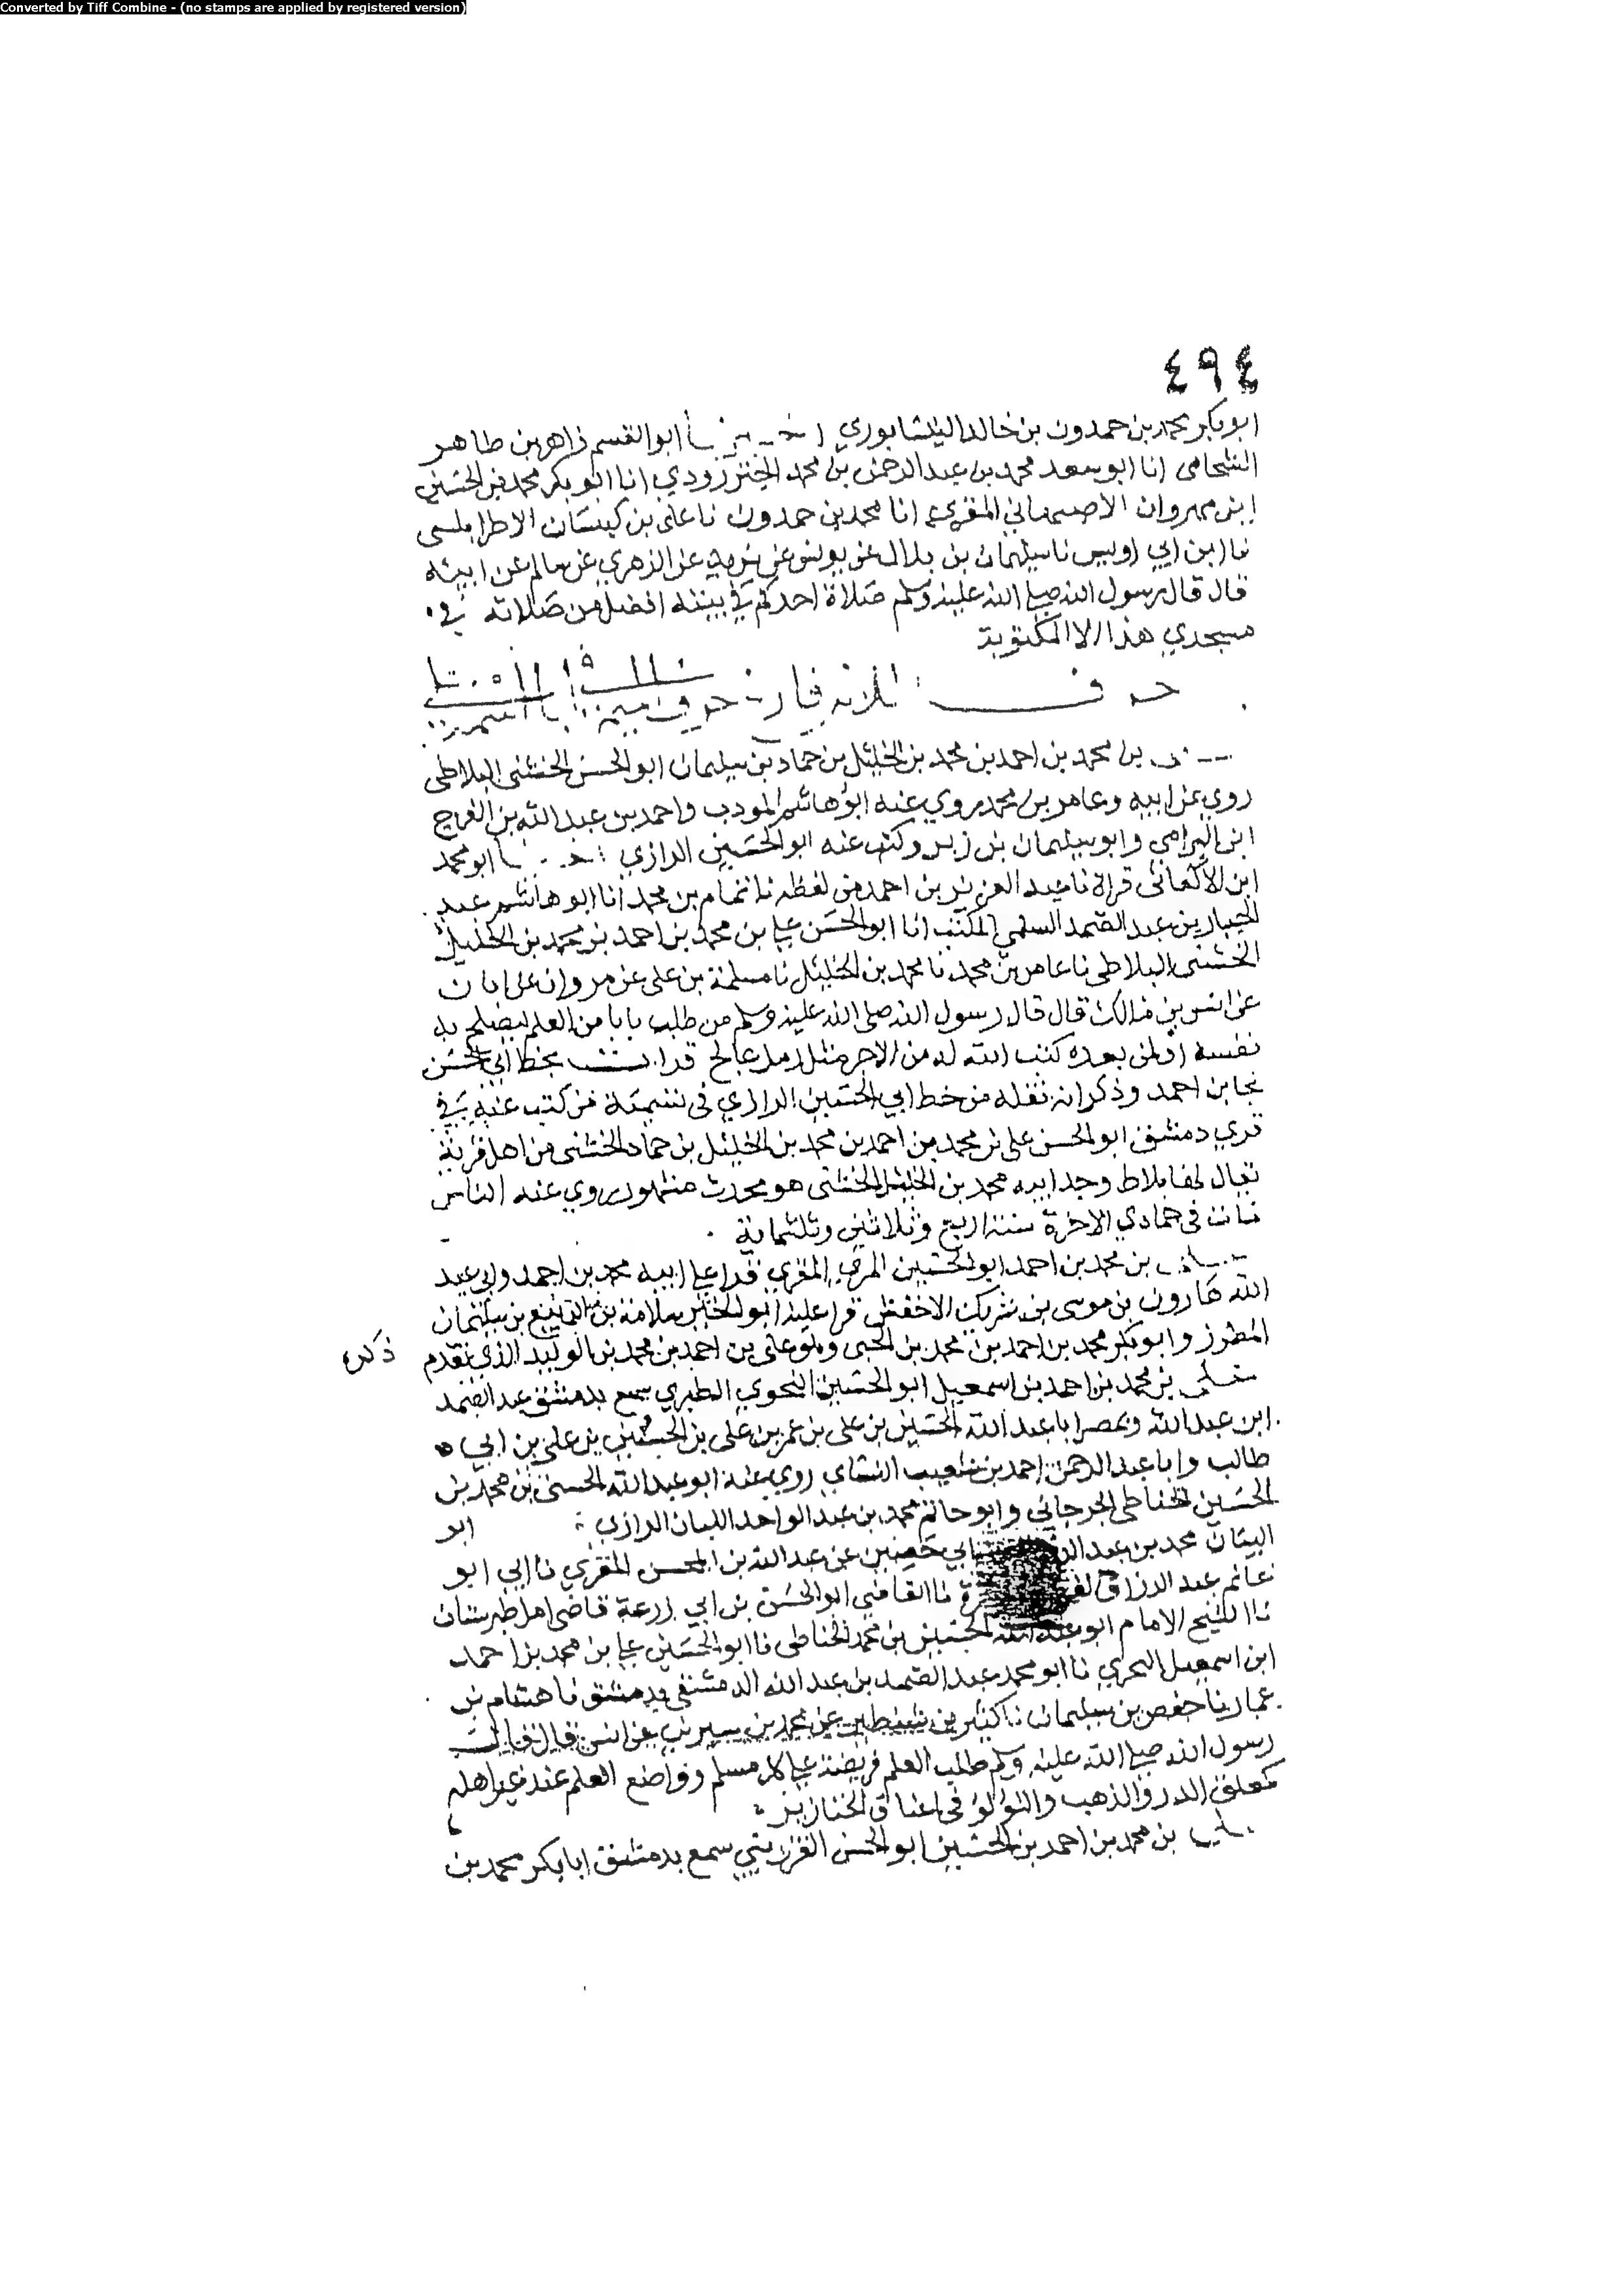 Converted by Tiff Combine - (no stamps are applied by registered version)
٤٩٤
ابو بكر محمد بن حمدون بن خالد النيسابوري ابو القسم زاهر بن طاهر
الشحامى انا ابو سعد محمد بن عبد الرحمن بن محمد الجنزرودي انا ابو بكر محمد بن الحسين
ابن مهروان الاصبهاني المقري انا محمد بن حمدون نا على بن كيسان الاطرابلسى
نا ابن ابي اويس نا سليمان بن بلال عن يونس عن يزيد عن الزهري عن سالم عن ابيه
قال قال رسول الله صلى الله عليه وسلم صلاة احدكم في بيته افضل من صلاته في
مسجدي هذا الا المكتوبة
حرف
بن محمد بن احمد بن محمد بن الخليل بن حماد بن سليمان ابو الحسن الخشنى البلاطى
روي عن ابيه وعامر بن محمد روي عنه ابو هاشم المودب واحمد بن عبد الله بن الفرج
ابن البرامى وابو سليمان بن زبر وكتب عنه ابو الحسين الرازي ابو محمد
ابن الاكفانى قراة نا عبد العزيز بن احمد من لفظه نا تمام بن محمد انا ابو هاشم عبد
الجبار بن عبد الصمد السلمى المكتب انا ابو الحسن على بن محمد بن احمد بن محمد بن الخليل
الخشنى البلاطى نا عامر بن محمد نا محمد بن الخليل نا مسلمة بن على عن مروان عن ابان
عن انس بن مالك قال قال رسول الله صلى الله عليه وسلم من طلب بابا من العلم ليصلح به
نفسه او لمن بعده كتب الله له من الاجر مثل رمل عالج قرات بخط ابي الحسن
نجا بن احمد وذكر انه نقله من خط ابي الحسين الرازي فى تسمية من كتب عنه في
قري دمشق ابو الحسن على بن محمد بن احمد بن محمد بن الخليل بن حماد الخشنى من اهل قرية
يقال لها بلاط وجد ابيه محمد بن الخليل الخشنى هو محدث مشهور روي عنه الناس
مات فى جمادي الاخرة سنة اربع وثلاثين وثلثماية
بن محمد بن احمد ابو الحسين المري المقري قرا على ابيه محمد بن احمد وابي عبد
الله هارون بن موسى بن شريك الاخفش قرا عليه ابو الحسن سلامة بن الربيع بن سليمان
المطرز وابو بكر محمد بن احمد بن محمد بن الجبى وهو على بن احمد بن محمد بن الوليد الذي تقدم ذكره
على بن محمد بن احمد بن اسمعيل ابو الحسين النحوي الطبري سمع بدمشق عبد الصمد
ابن عبد الله وبمصر ابا عبد الله الحسين بن على بن عمر بن على بن الحسين بن على بن ابي
طالب وابا عبد الرحمن احمد بن شعيب النساي روي عنه ابو عبد الله الحسين بن محمد بن
الحسين الحناطى الجرجاني وابو حاتم محمد بن عبد الواحد اللبان الرازي ابو
البيان محمد بن عبد ابي حصين عن عبد الله بن المحسن المقري نا ابي ابو
غانم عبد الرزاق نا القاضى ابو الحسن بن ابي زرعة قاضى امل طبرستان
نا الشيخ الامام ابو عبد الله الحسين بن محمد الحناطى نا ابو الحسين على بن محمد بن احمد
ابن اسمعيل نا ابو محمد عبد الصمد بن عبد الله الدمشقى بدمشق نا هشام بن
عمار نا حفص بن سليمان نا كثير بن شنظير عن محمد بن سيرين عن انس قال قال
رسول الله صلى الله عليه وسلم طلب العلم فريضة على كل مسلم وواضع العلم عند غير اهله
كمعلق الدر والذهب واللؤلؤ فى اعناق الخنازير
بن محمد بن احمد بن الحسين ابو الحسن القزويني سمع بدمشق ابا بكر محمد بن